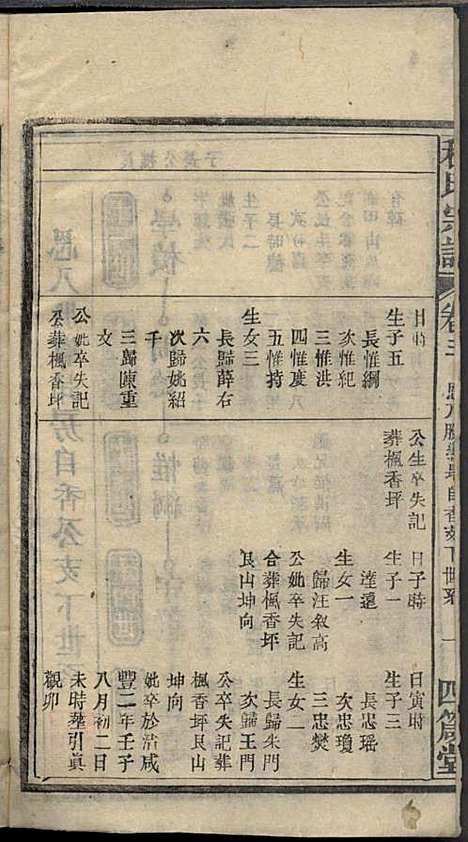 程氏宗譜
卷三
四箴堂
日時
生子五
長惟綱
次惟紀
三惟洪
四惟慶
五惟持
生女三
長歸薛右
六
次歸姚紹
千
三歸陳重
文
公妣卒失記
公葬楓香坪
公生卒失記
葬楓香坪
日子時
生子一
達遠
生女一
歸汪叙高
公妣卒失記
合葬楓香坪
艮山坤向
日寅時
生子三
長忠瑶
次忠瓊
三忠燓
生女二
長歸朱門
次歸王門
公卒失記葬
楓香坪艮山
坤向
妣卒於咸
豐二年壬子
八月初二日
未時葬引眞
觀卯